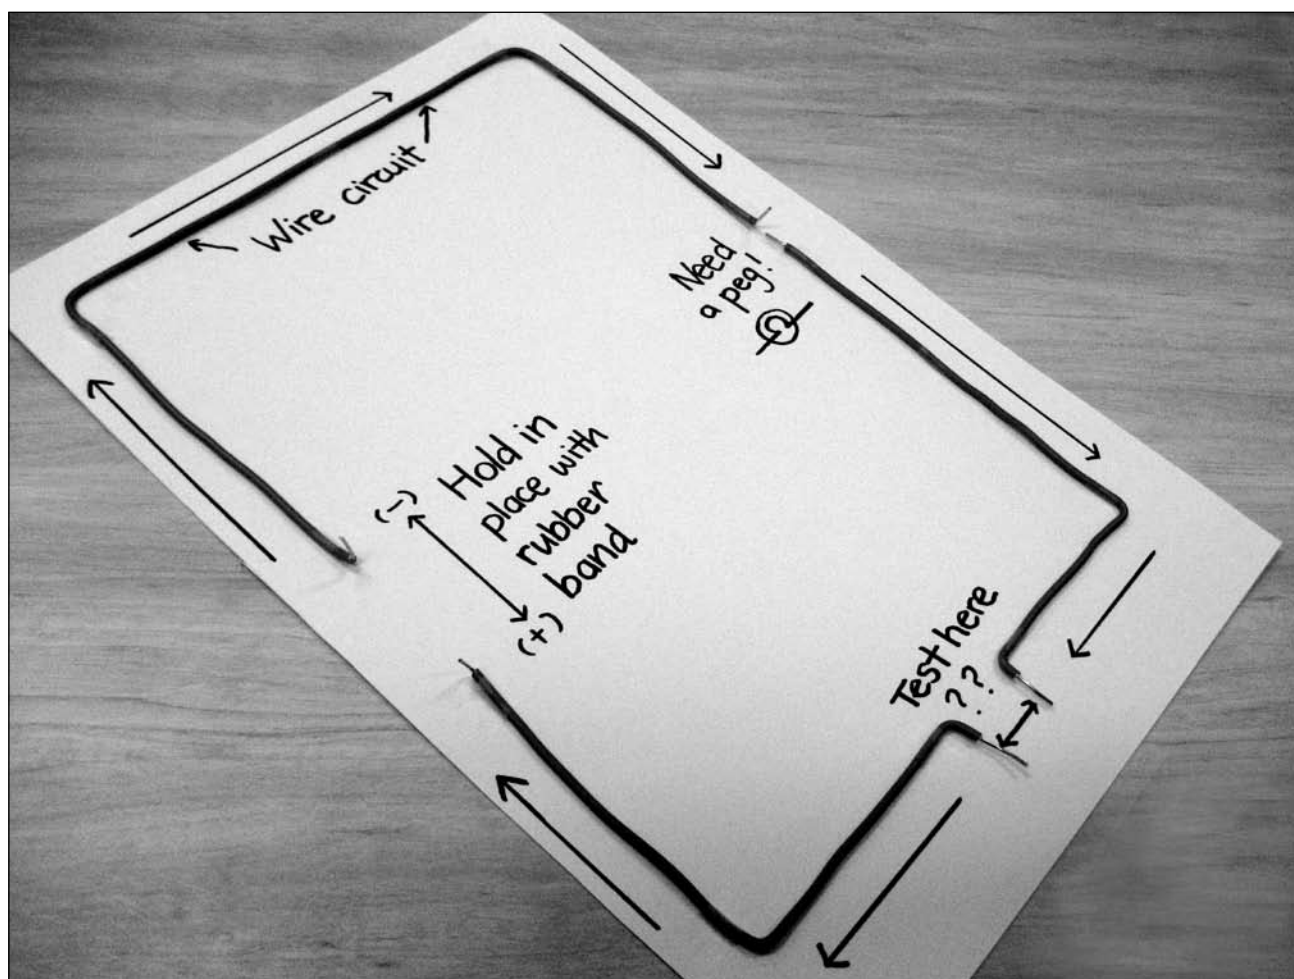 Wire circuit
Need
a peg!
(-)
Hold in
place with
rubber
band
(+)
Test here
??